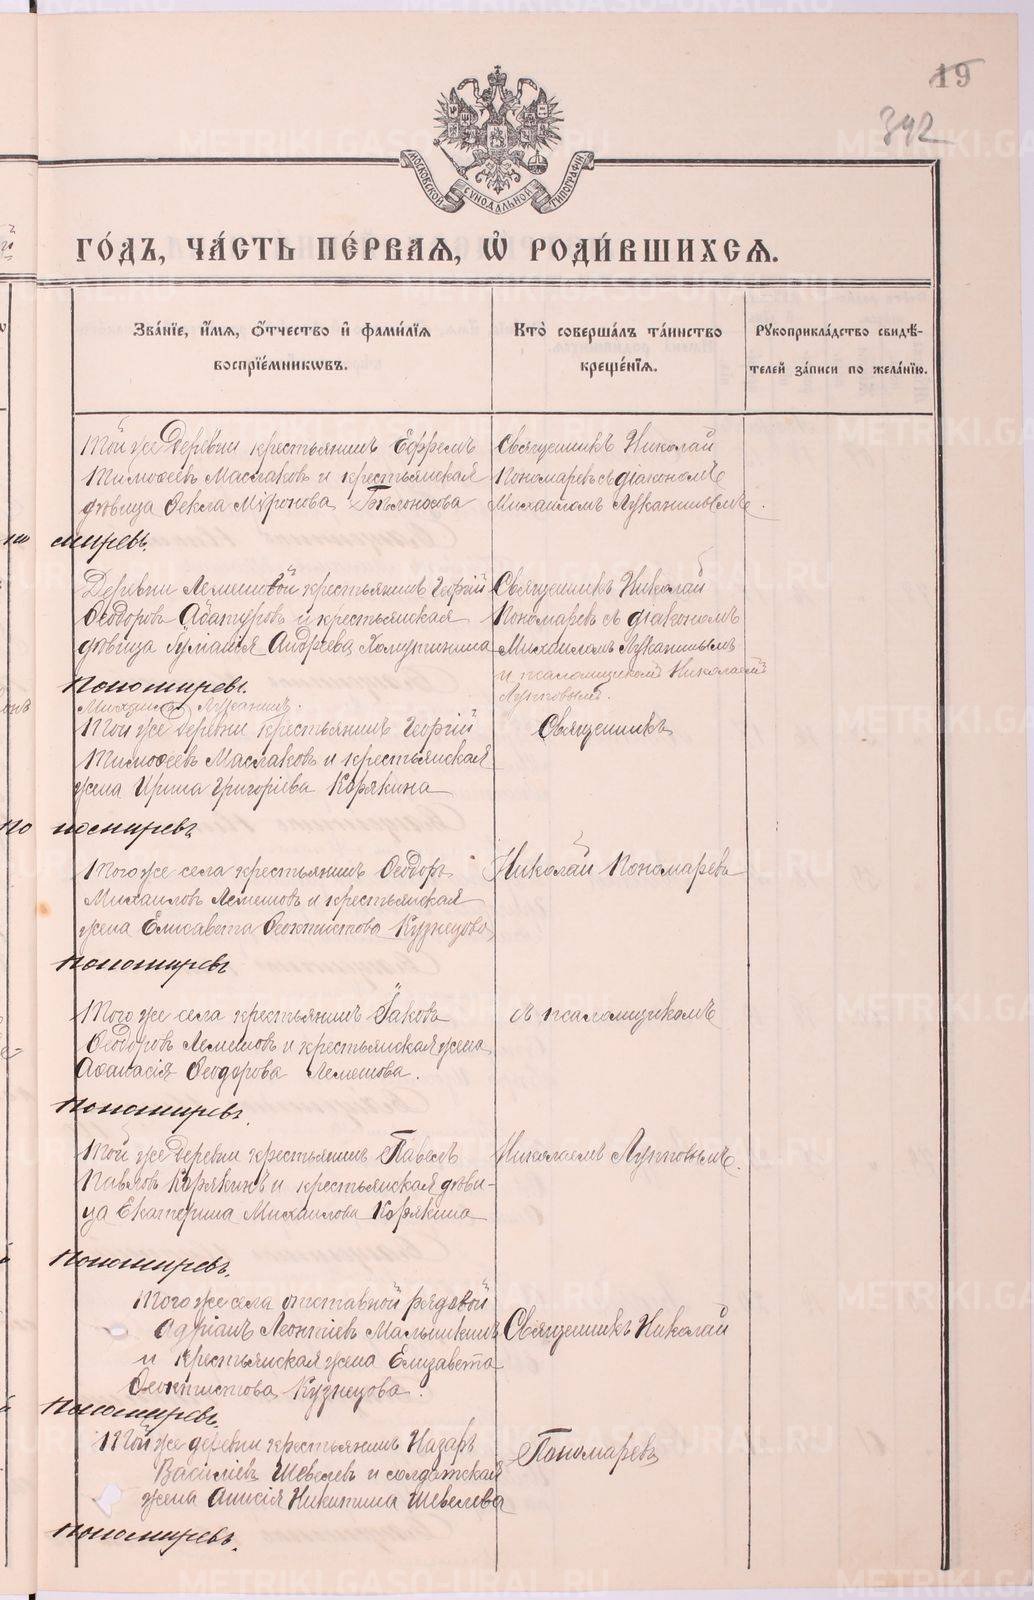 19
392
МОСКОВСКОЙ СѴНОДАЛЬНОЙ ТИПОГРАФІИ
ГО́ДЪ, ЧА́СТЬ ПЕ́РВАѦ, Ѡ҆ РОДИ́ВШИХСѦ.
Зва́нїе, и҆́мѧ, ѻ҆́тчество и҆ фами́лїѧ
воспрїе́мникѡвъ.
Кто̀ соверша́лъ та́инство
креще́нїѧ.
Рꙋкоприкла́дство свидѣ́-
телей за́писи по жела́нїю.
Той же деревни крестьянинъ Ефремъ
Тимоѳеевъ Маслаковъ и крестьянская
дѣвица Ѳекла Миронова Бѣлоносова
Священникъ Николай
Пономаревъ съ діакономъ
Михаиломъ Луканинымъ.
Деревни Лемешовой крестьянинъ Георгій
Ѳеодоровъ Абатуровъ и крестьянская
дѣвица Іуліанія Андреева Хомутинина
Священникъ Николай
Пономаревъ съ діакономъ
Михаиломъ Луканинымъ
и псаломщикомъ Николаемъ
Луппovымъ.
Пономаревъ.
Михаилъ Луканинъ.
Той же деревни крестьянинъ Георгій
Тимоѳеевъ Маслаковъ и крестьянская
жена Ирина Григоріева Корякина
Священникъ
Того же села крестьянинъ Ѳеодоръ
Михаиловъ Лемешовъ и крестьянская
жена Елисавета Ѳеоктистова Кузнецова
Николай Пономаревъ
Пономаревъ
Того же села крестьянинъ Іаковъ
Ѳеодоровъ Лемешовъ и крестьянская жена
Аѳанасія Ѳеодорова Лемешова.
съ псаломщикомъ
Пономаревъ.
Той же деревни крестьянинъ Павелъ
Павловъ Корякинъ и крестьянская дѣви-
ца Екатерина Михаилова Корякина
Николаемъ Лупповымъ.
Пономаревъ.
Того же села отставной рядовой
Адріанъ Леонтіевъ Мальшкинъ
и крестьянская жена Елизавета
Ѳеоктистова Кузнецова.
Священникъ Николай
Пономаревъ.
Той же деревни крестьянинъ Назаръ
Василіевъ Шевелевъ и солдатская
жена Анисія Никитина Шевелева
Пономаревъ
Пономаревъ.